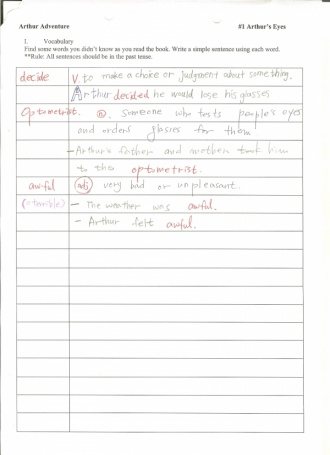 Arthur Adventure #1 Arthur's Eyes
I. Vocabulary
Find some words you didn't know as you read the book. Write a simple sentence using each word.
**Rule: All sentences should be in the past tense.
decide V. to make a choice or judgment about something.
Arthur decided he would lose his glasses
Optometrist. n. Someone who tests people's eyes
and orders glasses for them
- Arthur's father and mother took him
to the optometrist.
awful adj very bad or unpleasant.
(=terrible) - The weather was awful.
- Arthur felt awful.